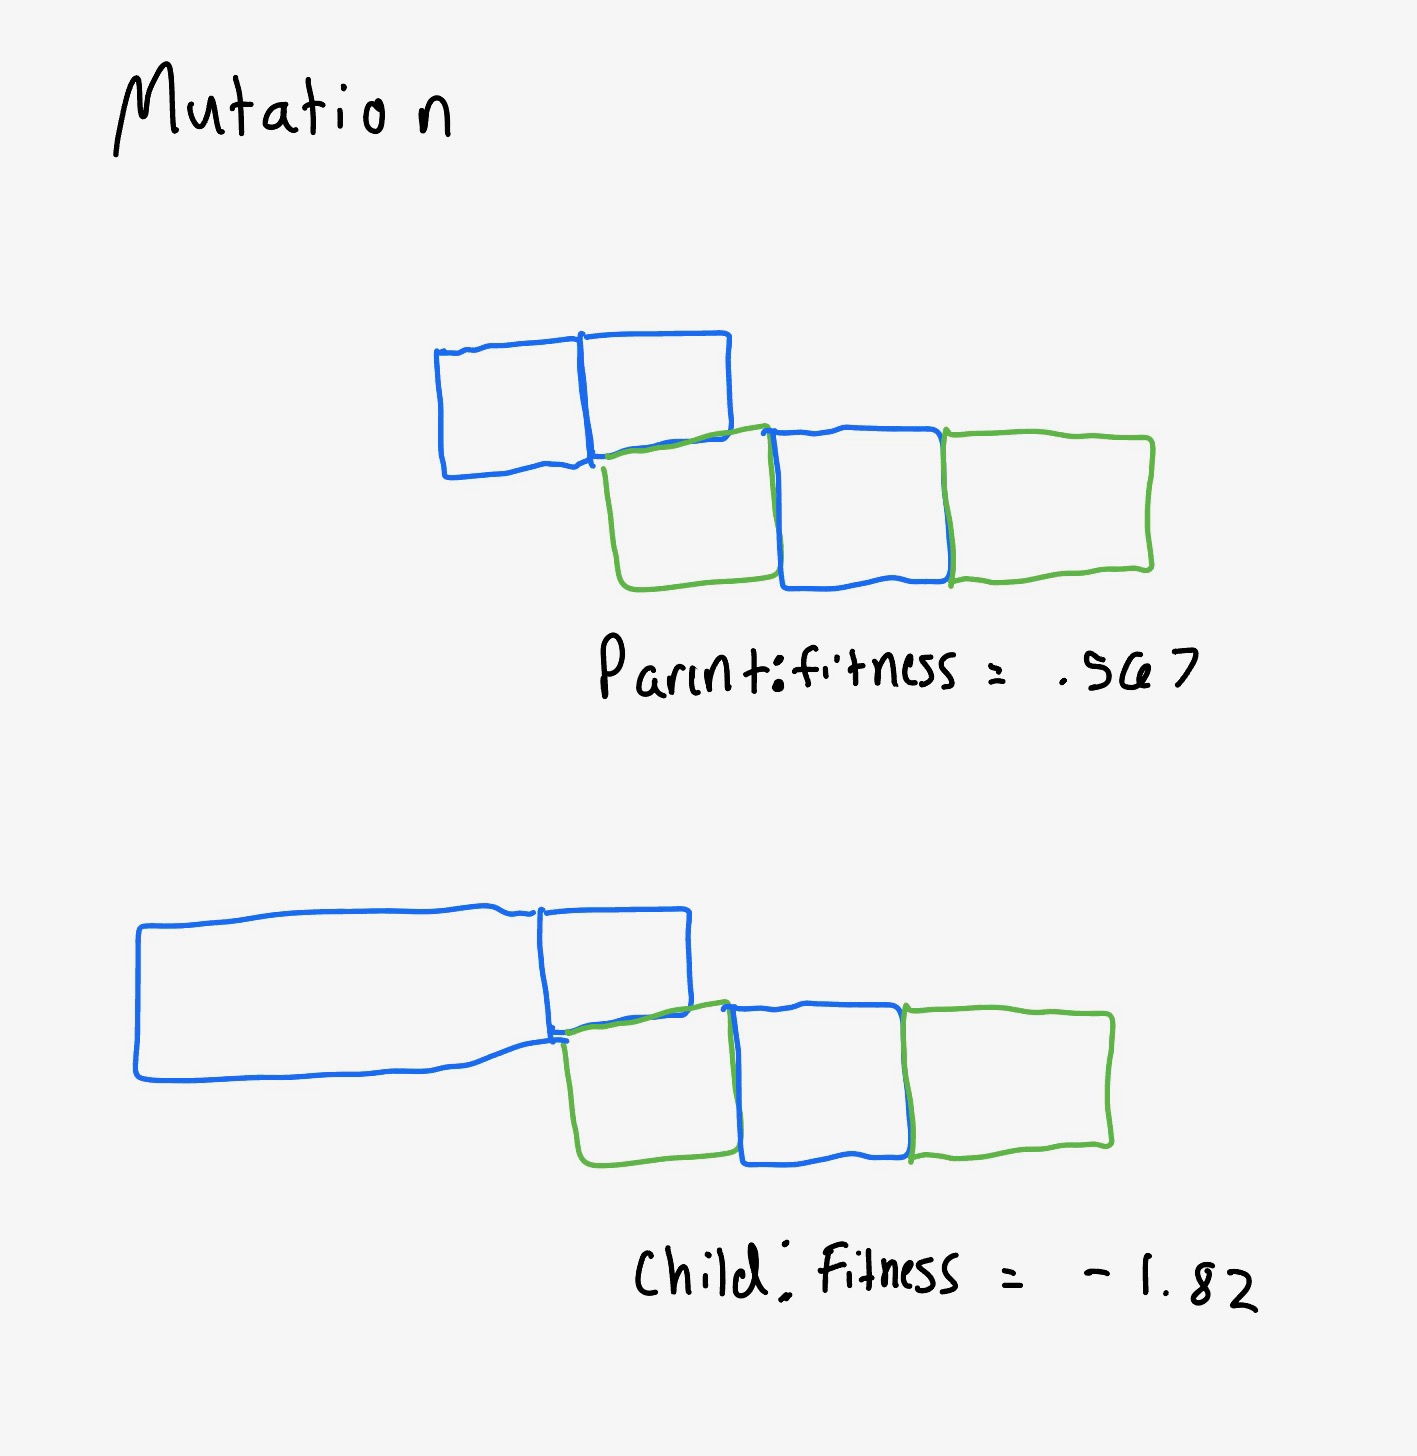 Mutation
Parent: fitness = .567
Child: Fitness = -1.82